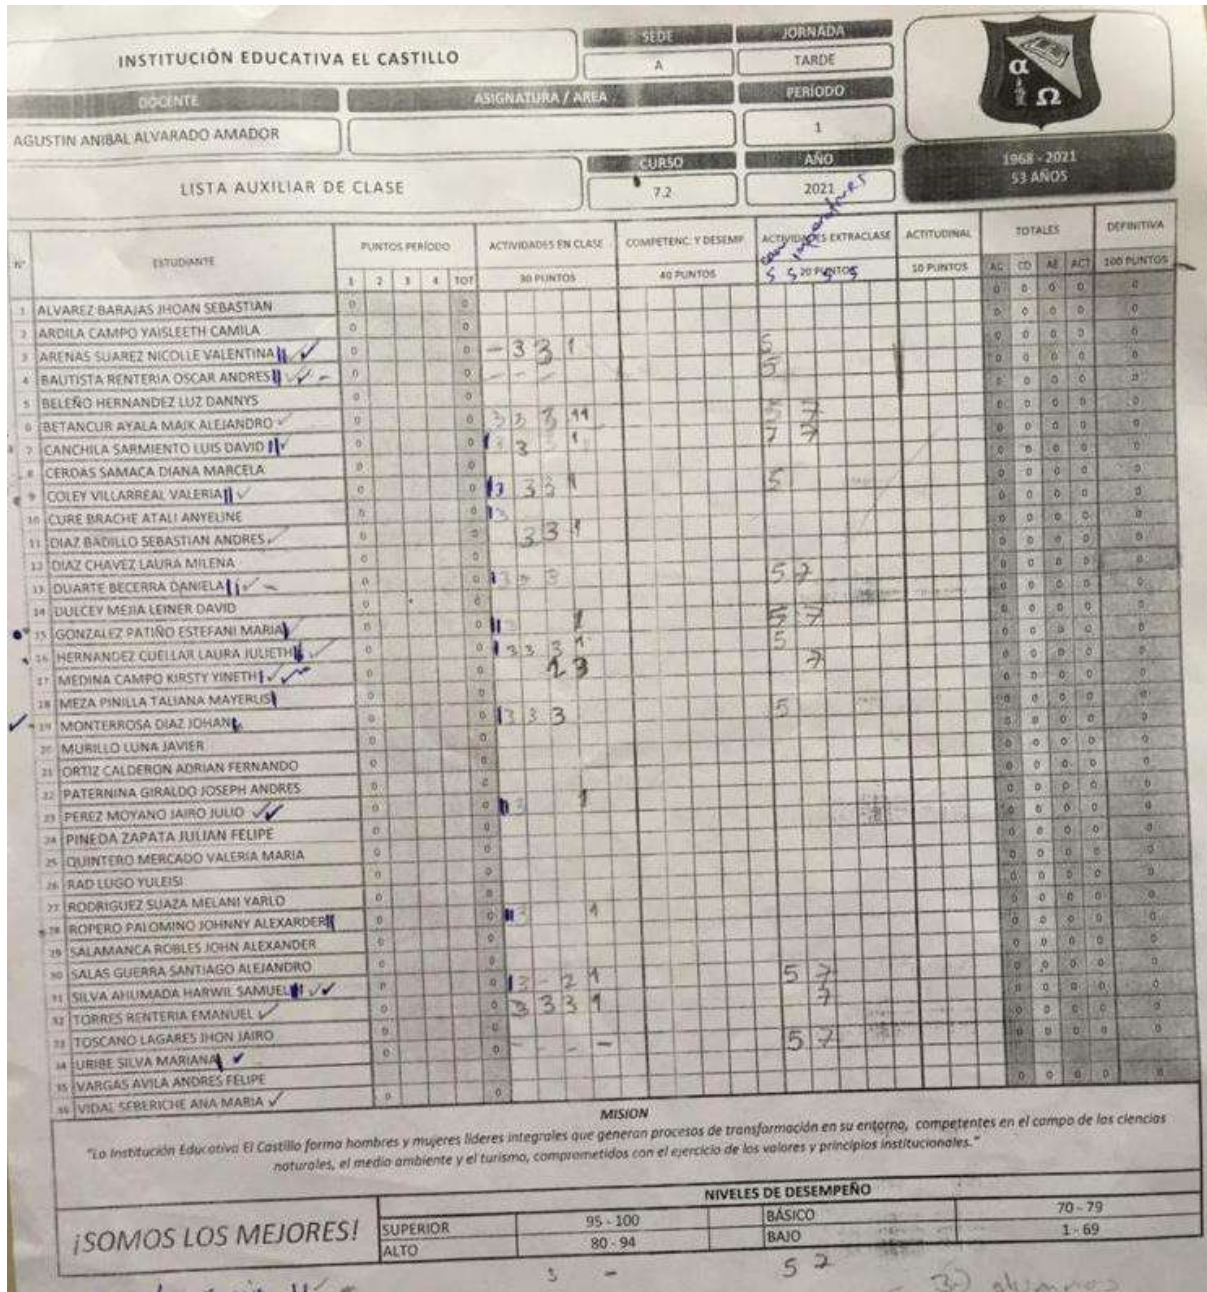 INSTITUCIÓN EDUCATIVA EL CASTILLO
SEDE
JORNADA
A
TARDE
DOCENTE
ASIGNATURA / AREA
PERÍODO
AGUSTIN ANIBAL ALVARADO AMADOR
1
α
Ω
LISTA AUXILIAR DE CLASE
CURSO
AÑO
7.2
2021
1968 - 2021
53 AÑOS
N° ESTUDIANTE PUNTOS PERÍODO ACTIVIDADES EN CLASE COMPETENC. Y DESEMP ACTIVIDADES EXTRACLASE ACTITUDINAL TOTALES DEFINITIVA
1 2 3 4 TOT 30 PUNTOS 40 PUNTOS 20 PUNTOS 10 PUNTOS AC CD AE ACT 100 PUNTOS
5 5 5 5
1 ALVAREZ BARAJAS JHOAN SEBASTIAN 0 0 0 0 0 0 0
2 ARDILA CAMPO YAISLEETH CAMILA 0 0 0 0 0 0 0
3 ARENAS SUAREZ NICOLLE VALENTINA 0 0 - 3 3 1 5 0 0 0 0 0
4 BAUTISTA RENTERIA OSCAR ANDRES 0 0 - - - 5 0 0 0 0 0
5 BELEÑO HERNANDEZ LUZ DANNYS 0 0 0 0 0 0 0
6 BETANCUR AYALA MAIK ALEJANDRO 0 0 3 3 3 11 7 0 0 0 0 0
7 CANCHILA SARMIENTO LUIS DAVID 0 0 3 3 1 7 7 0 0 0 0 0
8 CERDAS SAMACA DIANA MARCELA 0 0 0 0 0 0 0
9 COLEY VILLARREAL VALERIA 0 0 3 3 3 1 5 0 0 0 0 0
10 CURE BRACHE ATALI ANYELINE 0 0 3 0 0 0 0 0
11 DIAZ BADILLO SEBASTIAN ANDRES 0 0 3 3 1 0 0 0 0 0
12 DIAZ CHAVEZ LAURA MILENA 0 0 0 0 0 0 0
13 DUARTE BECERRA DANIELA 0 0 3 3 3 5 7 0 0 0 0 0
14 DULCEY MEJIA LEINER DAVID 0 0 0 0 0 0 0
15 GONZALEZ PATIÑO ESTEFANI MARIA 0 0 3 1 5 7 0 0 0 0 0
16 HERNANDEZ CUELLAR LAURA JULIETH 0 0 3 3 3 1 5 0 0 0 0 0
17 MEDINA CAMPO KIRSTY YINETH 0 0 1 3 7 0 0 0 0 0
18 MEZA PINILLA TALIANA MAYERLIS 0 0 0 0 0 0 0
19 MONTERROSA DIAZ JOHAN 0 0 3 3 3 5 0 0 0 0 0
20 MURILLO LUNA JAVIER 0 0 0 0 0 0 0
21 ORTIZ CALDERON ADRIAN FERNANDO 0 0 0 0 0 0 0
22 PATERNINA GIRALDO JOSEPH ANDRES 0 0 0 0 0 0 0
23 PEREZ MOYANO JAIRO JULIO 0 0 3 1 0 0 0 0 0
24 PINEDA ZAPATA JULIAN FELIPE 0 0 0 0 0 0 0
25 QUINTERO MERCADO VALERIA MARIA 0 0 0 0 0 0 0
26 RAD LUGO YULEISI 0 0 0 0 0 0 0
27 RODRIGUEZ SUAZA MELANI YARLO 0 0 0 0 0 0 0
28 ROPERO PALOMINO JOHNNY ALEXARDER 0 0 3 1 0 0 0 0 0
29 SALAMANCA ROBLES JOHN ALEXANDER 0 0 0 0 0 0 0
30 SALAS GUERRA SANTIAGO ALEJANDRO 0 0 0 0 0 0 0
31 SILVA AHUMADA HARWIL SAMUEL 0 0 3 - 2 1 5 7 0 0 0 0 0
32 TORRES RENTERIA EMANUEL 0 0 3 3 3 1 7 0 0 0 0 0
33 TOSCANO LAGARES JHON JAIRO 0 0 0 0 0 0 0
34 URIBE SILVA MARIANA 0 0 - - - - 5 7 0 0 0 0 0
35 VARGAS AVILA ANDRES FELIPE
36 VIDAL SEBERICHE ANA MARIA 0 0 0 0 0 0 0
MISION
"La Institución Educativa El Castillo forma hombres y mujeres líderes integrales que generan procesos de transformación en su entorno, competentes en el campo de las ciencias
naturales, el medio ambiente y el turismo, comprometidos con el ejercicio de los valores y principios institucionales."
NIVELES DE DESEMPEÑO
¡SOMOS LOS MEJORES!
SUPERIOR 95 - 100 BÁSICO 70 - 79
ALTO 80 - 94 BAJO 1 - 69
3 - 5 7
30 alumnos